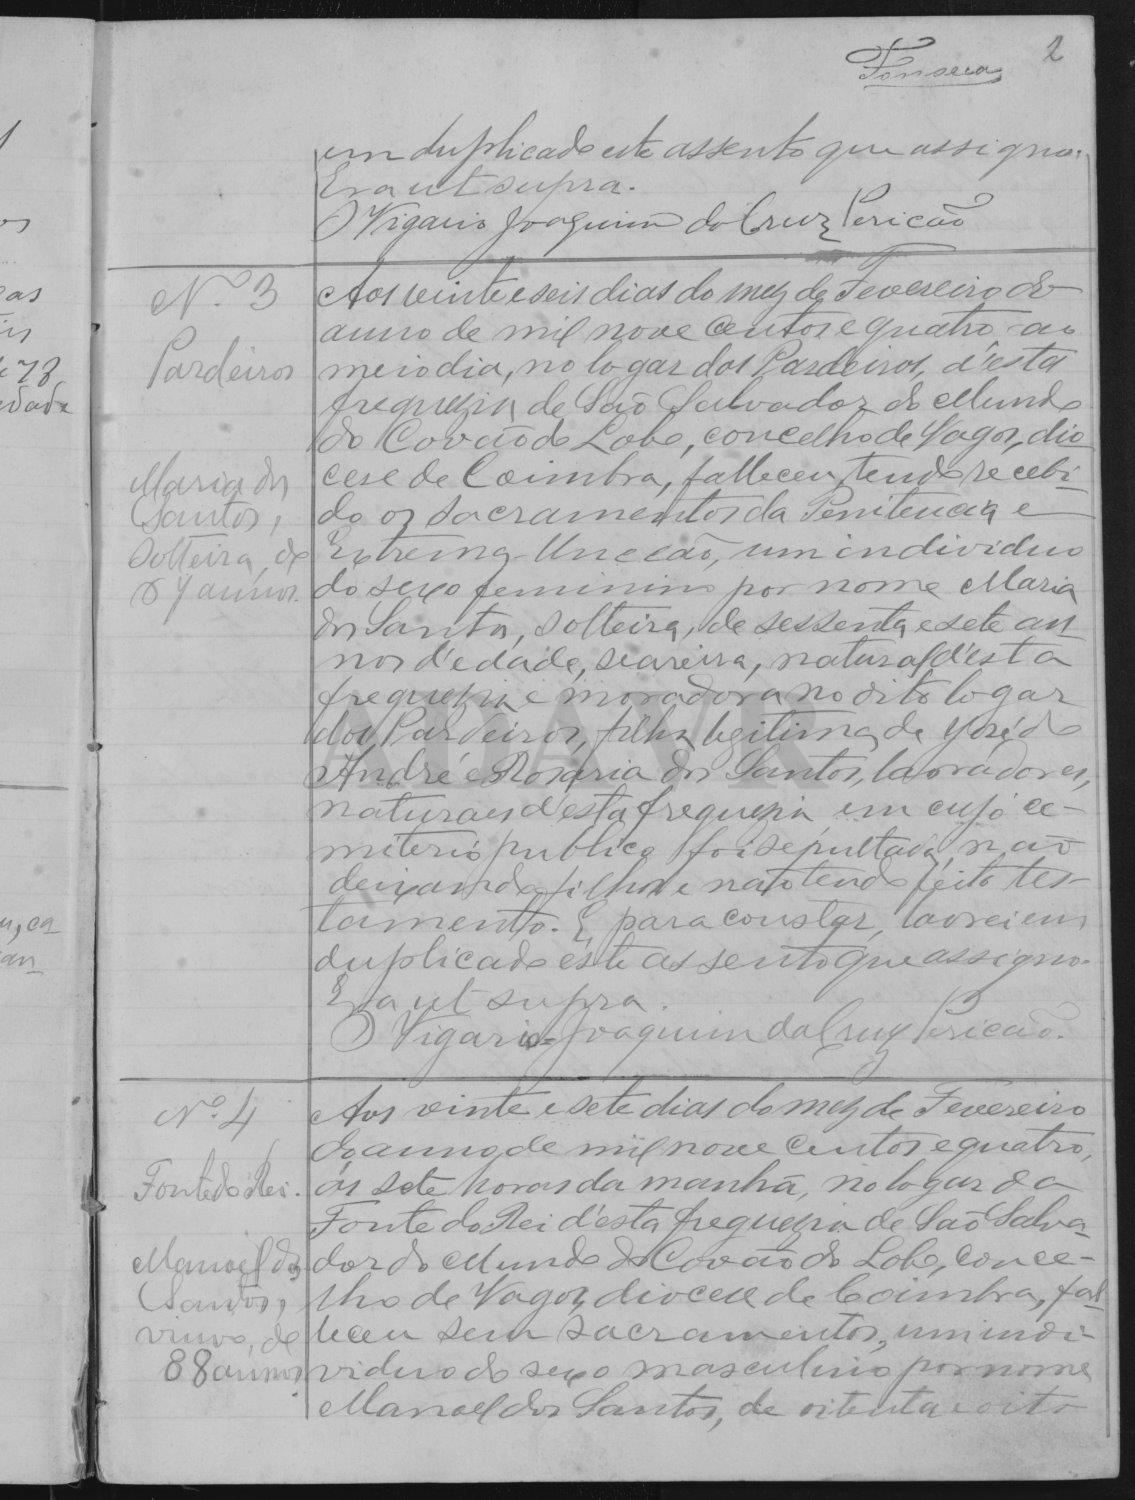 Fonseca
2
em duplicado este assento que assigno.
Era ut supra.
O Vigario Joaquim da Cruz Pericão
N.º 3
Pardeiros
Maria dos
Santos,
solteira, de
67 annos.
Aos vinte e seis dias do mez de Fevereiro do
anno de mil nove centos e quatro ao
meio dia, no logar dos Pardeiros, d'esta
freguezia de São Salvador do Mundo
do Covão do Lobo, concelho de Vagos, dio
cese de Coimbra, falleceu, tendo recebi-
do os sacramentos da Penitencia e
Extrema-Uncção, um individuo
do sexo feminino por nome Maria
dos Santos, solteira, de sessenta e sete an
nos d'edade, seareira, natural d'esta
freguezia e moradora no dito logar
dos Pardeiros, filha legitima de José de
André e Rosaria dos Santos, lavradores,
naturaes d'esta freguezia em cujo ce-
miterio publico foi sepultada, não
deixando filhos e não tendo feito tes-
tamento. E para constar, lavrei em
duplicado este assento que assigno.
Era ut supra.
O Vigario Joaquim da Cruz Pericão.
N.º 4
Fonte do Rei.
Manoel dos
Santos,
viuvo, de
88 annos.
Aos vinte e sete dias do mez de Fevereiro
do anno de mil nove centos e quatro,
ás sete horas da manhã, no logar da
Fonte do Rei d'esta freguezia de São Salva-
dor do Mundo do Covão do Lobo, conce-
lho de Vagos, diocese de Coimbra, fal-
leceu sem sacramentos, um indi-
viduo do sexo masculino por nome
Manoel dos Santos, de oitenta e oito